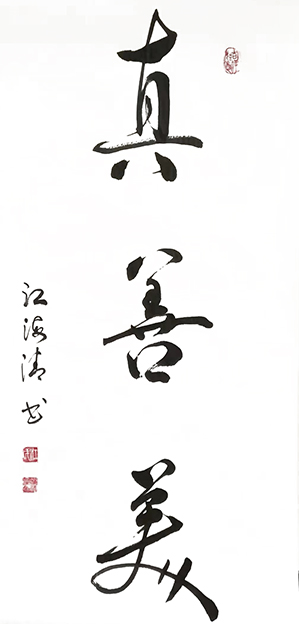 真善美
江海清书